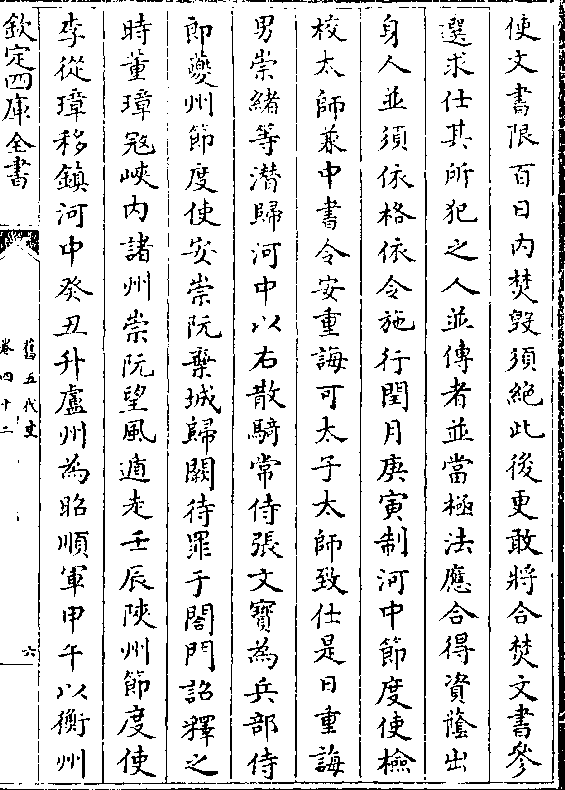 使文書限百日内焚毁須絶此後更敢將合焚文書參
選求仕其所犯之人並傳者並當極法應合得資蔭出
身人並須依格依令施行閏月庚寅制河中節度使檢
校太師兼中書令安重誨可太子太師致仕是日重誨
男崇緒等潛歸河中以右散騎常侍張文寶為兵部侍
郎夔州節度使安崇阮棄城歸闕待罪于閤門詔釋之
時董璋宼峽内諸州崇阮望風遁走壬辰陜州節度使
李從璋移鎮河中癸丑升盧州為昭順軍甲午以衡州
欽定四庫全書
舊五代史
卷四十二
六